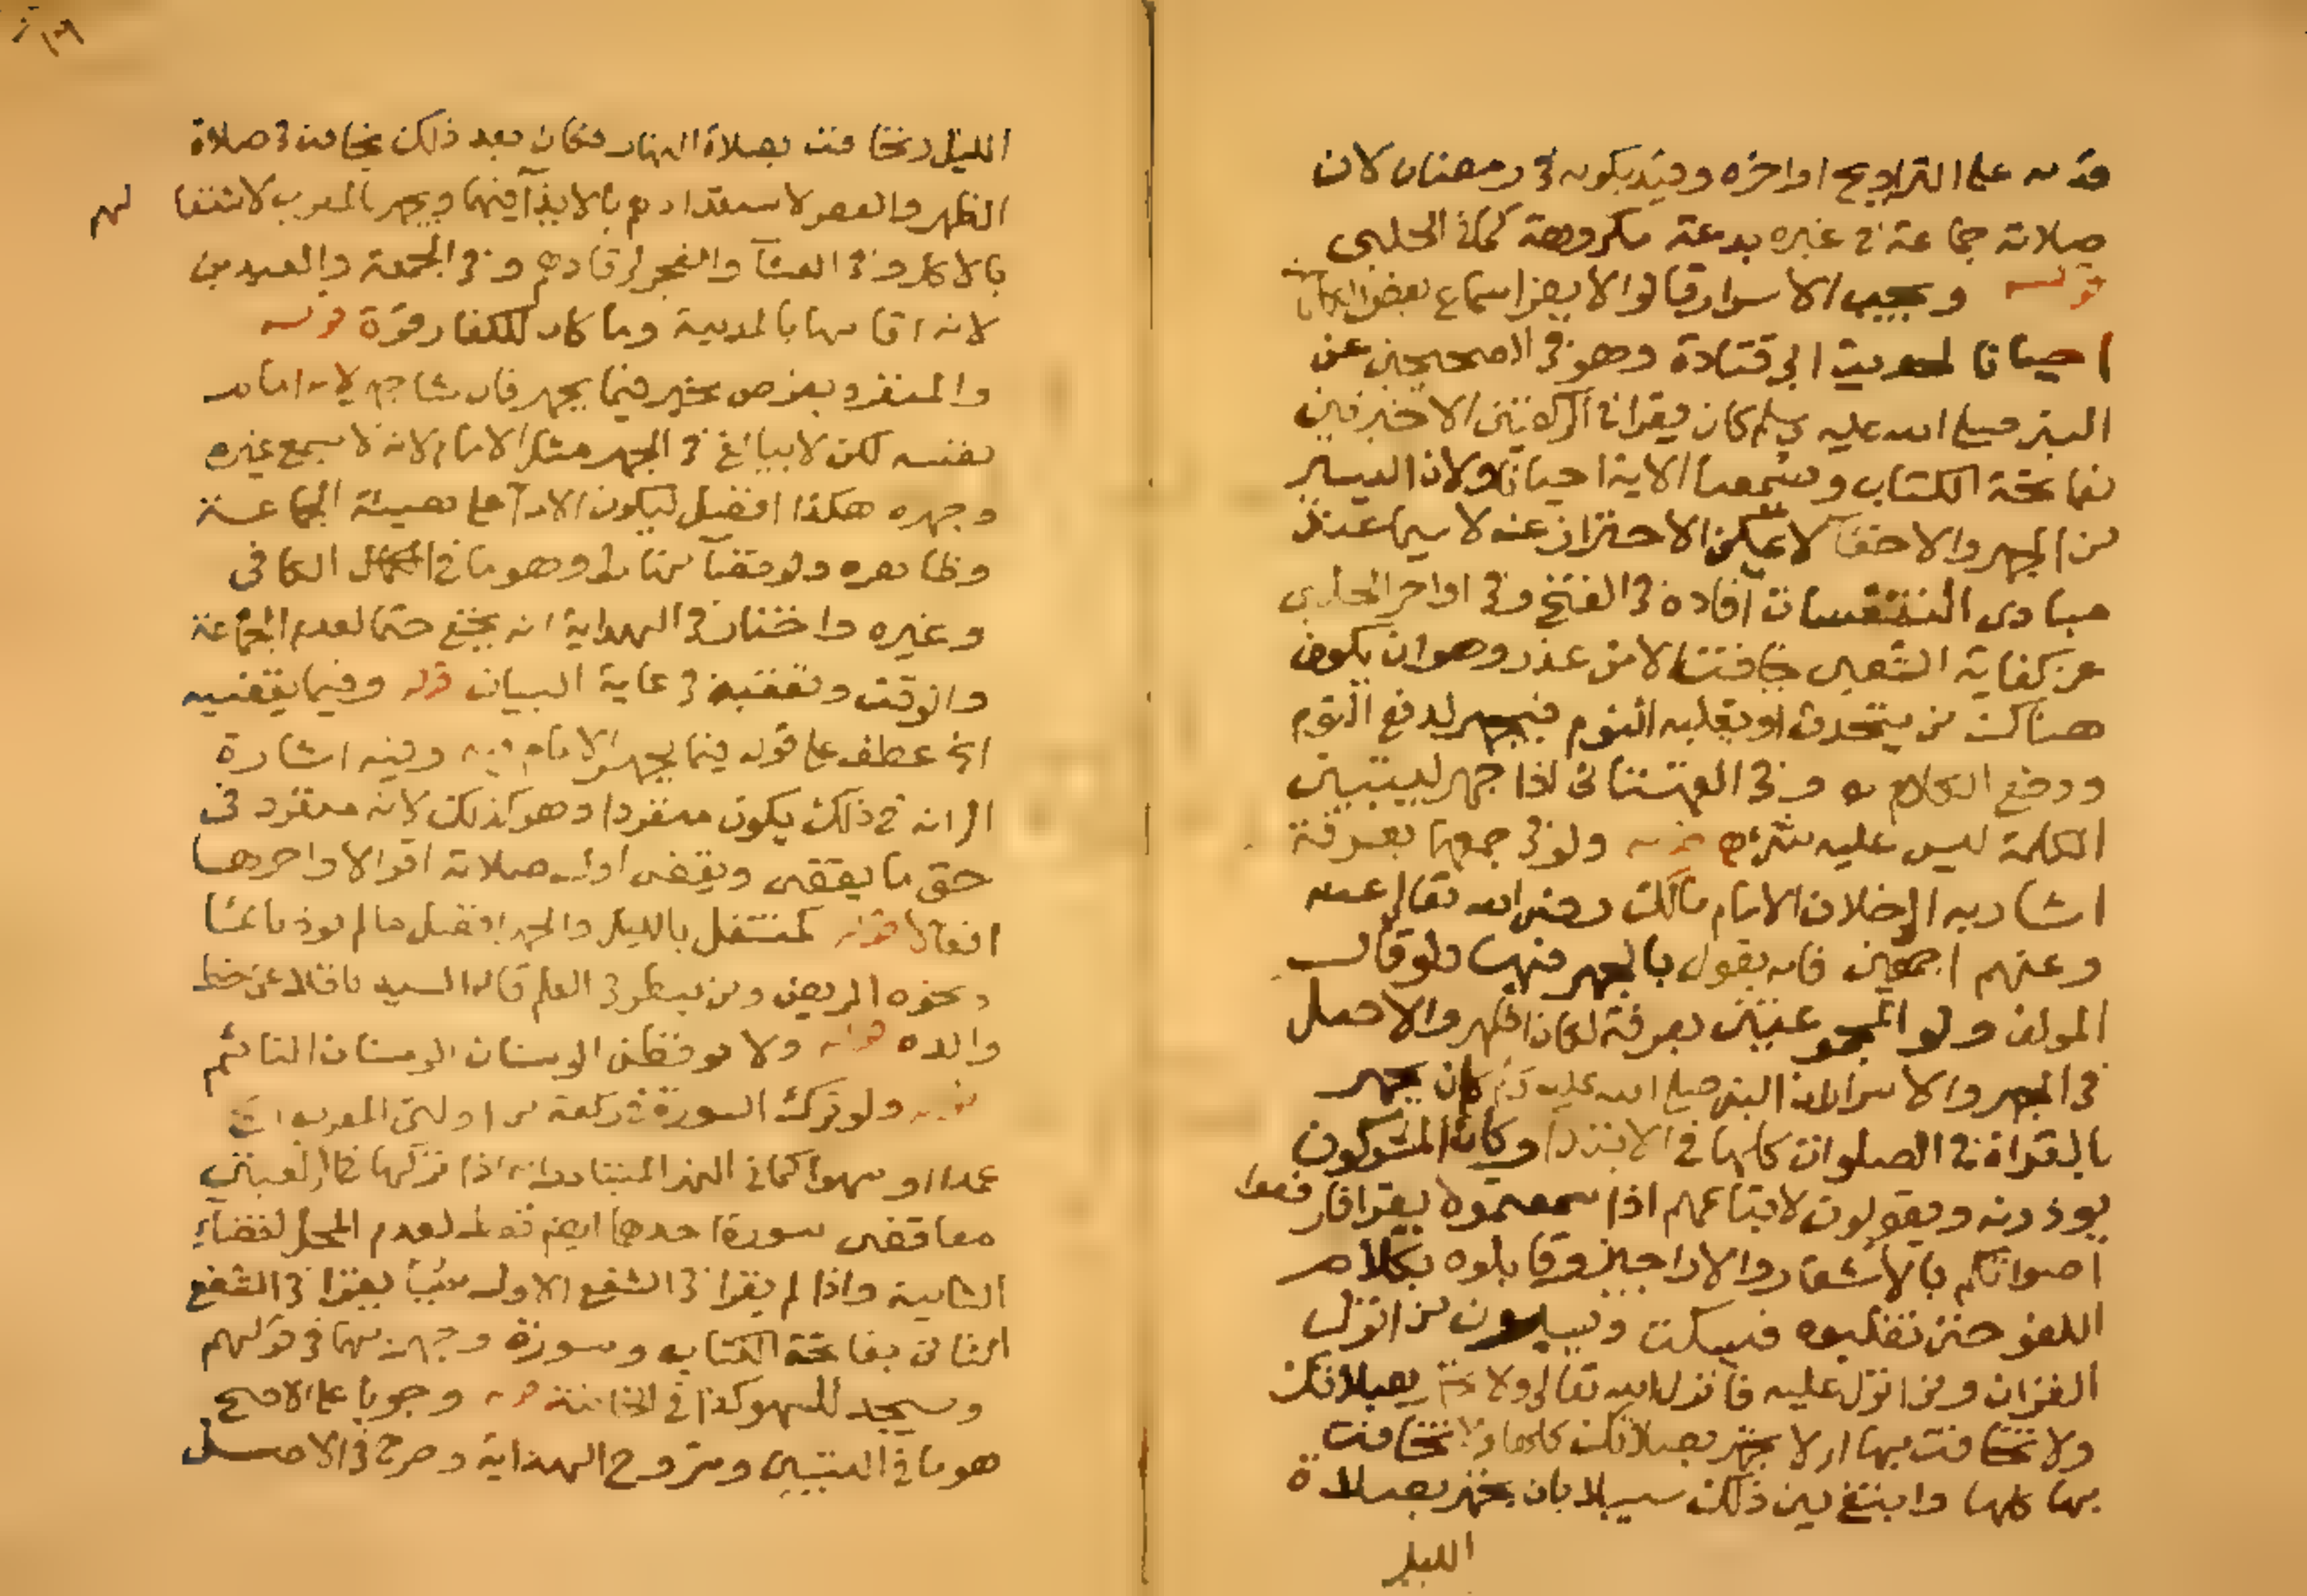 قدمه على التراويح اواخره وقيد بكونه في رمضان لان
صلاته جماعة في غيره بدعة مكروهة كما في الحلبي
قوله ويجب الاسرار قالوا لا يضر اسماع بعض الكلمات
احيانا لحديث ابي قتادة وهو في الصحيحين عن
النبي صلى الله عليه وسلم كان يقرا في الركعتين الاخيرتين
بفاتحة الكتاب ويسمعنا الاية احيانا ولان اليسير
من الجهر والاخفآ لا يمكن الاحتراز عنه لا سيما عند
مبادى التنفسات افاده في الفتح وفي اواخر الحلبي
عن كفاية الشعبي خافت الا من عذر وهو ان يكون
هناك من يتحدث او يغلبه النوم فيجهر لدفع النوم
ودفع الكلام وفي القهستاني اذا جهر ليبين
الكلمة ليس عليه شيء قوله ولو في جمعها بعرفة
اشار به الى خلاف الامام مالك رضى الله تعالى عنه
وعنهم اجمعين فانه يقول بالجهر فيها ولو قال
المولف ولو بعرفة لكان اظهر والاصل
في الجهر والاسرار ان النبي صلى الله عليه وسلم كان يجهر
بالقراة في الصلوات كلها في الابتدا وكان المشركون
يوذونه ويقولون لاتباعهم اذا سمعتموه يقرا فارفعوا
اصواتكم بالاشعار والاراجيز وقابلوه بكلام
اللغو حتى تغلبوه فيسكت ويسبون من انزل
القران ومن انزل عليه فانزل الله تعالى ولا تجهر بصلاتك
ولا تخافت بها اي لا تجهر بصلاتك كلها ولا تخافت
بها كلها وابتغ بين ذلك سبيلا بان تجهر بصلاة
الليل
الليل وتخافت بصلاة النهار فكان بعد ذلك يخافت في صلاة
الظهر والعصر لاستعدادهم بالايذآ فيهما ويجهر بالمغرب لاشتغا لهم
بالاكل وفي العشآ والفجر لرقادهم وفي الجمعة والعيدين
لانه اقامها بالمدينة وما كان للكفار قوة قوله
والمنفرد بفرض يخير فيما يجهر فان شا جهر لانه امام
نفسه لكن لا يبالغ في الجهر مثل الامام لانه لا يسمع غيره
وجهره هكذا افضل ليكون الادآ على هيئة الجماعة
وظاهره ولو قضآ وهو ما في الكافى
وغيره واختار في الهداية انه يخفي حتما لعدم الجماعة
والوقت وتعقبه في غاية البيان قوله وفيما يقضيه
الخ عطف على قوله فيما يجهر الامام فيه وفيه اشارة
الى انه في ذلك يكون منفردا وهو كذلك لانه منفرد فى
حق ما يقضى ويقضى اول صلاته اقوالا واخرها
افعالا قوله كمتنفل بالليل والجهر افضل ما لم يوذ نائما
ونحوه المريض ومن ينظر في العلم قاله السيد ناقلا عن خط
والده قوله ولا يوقظن الوسنان الوسنان النائم
قوله ولو ترك السورة في ركعة من اوليي المغرب
عمدا او سهوا كما في النهر المتبادر انه اذا تركها في اوليين
معا قضى سورة احدهما لعدم المحل لقضاء
الثانية واذا لم يقرا في الشفع الاول شيئا يقرا في الشفع
الثاني بفاتحة الكتاب وسورة وجهر بهما في قولهم
وسجد للسهو كذا في الخانية قوله وجوبا على الاصح
هو ما في التبيين وشروح الهداية وصرح في الاصل